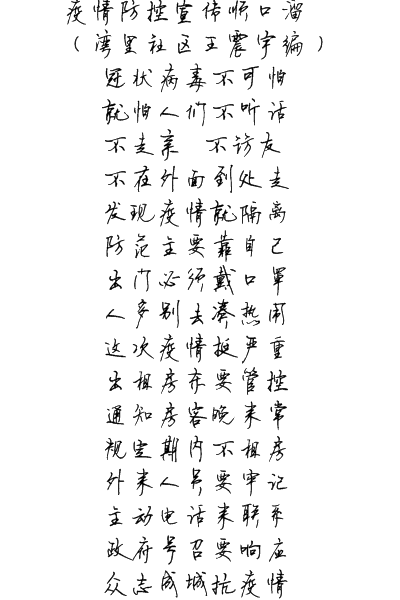 疫情防控宣传顺口溜
（湾里社区王震宇编）
冠状病毒不可怕
就怕人们不听话
不走亲 不访友
不在外面到处走
发现疫情就隔离
防范主要靠自己
出门必须戴口罩
人多别去凑热闹
这次疫情挺严重
出租房亦要管控
通知房客晚来常
视定期内不租房
外来人员要牢记
主动电话来联系
政府号召要响应
众志成城抗疫情